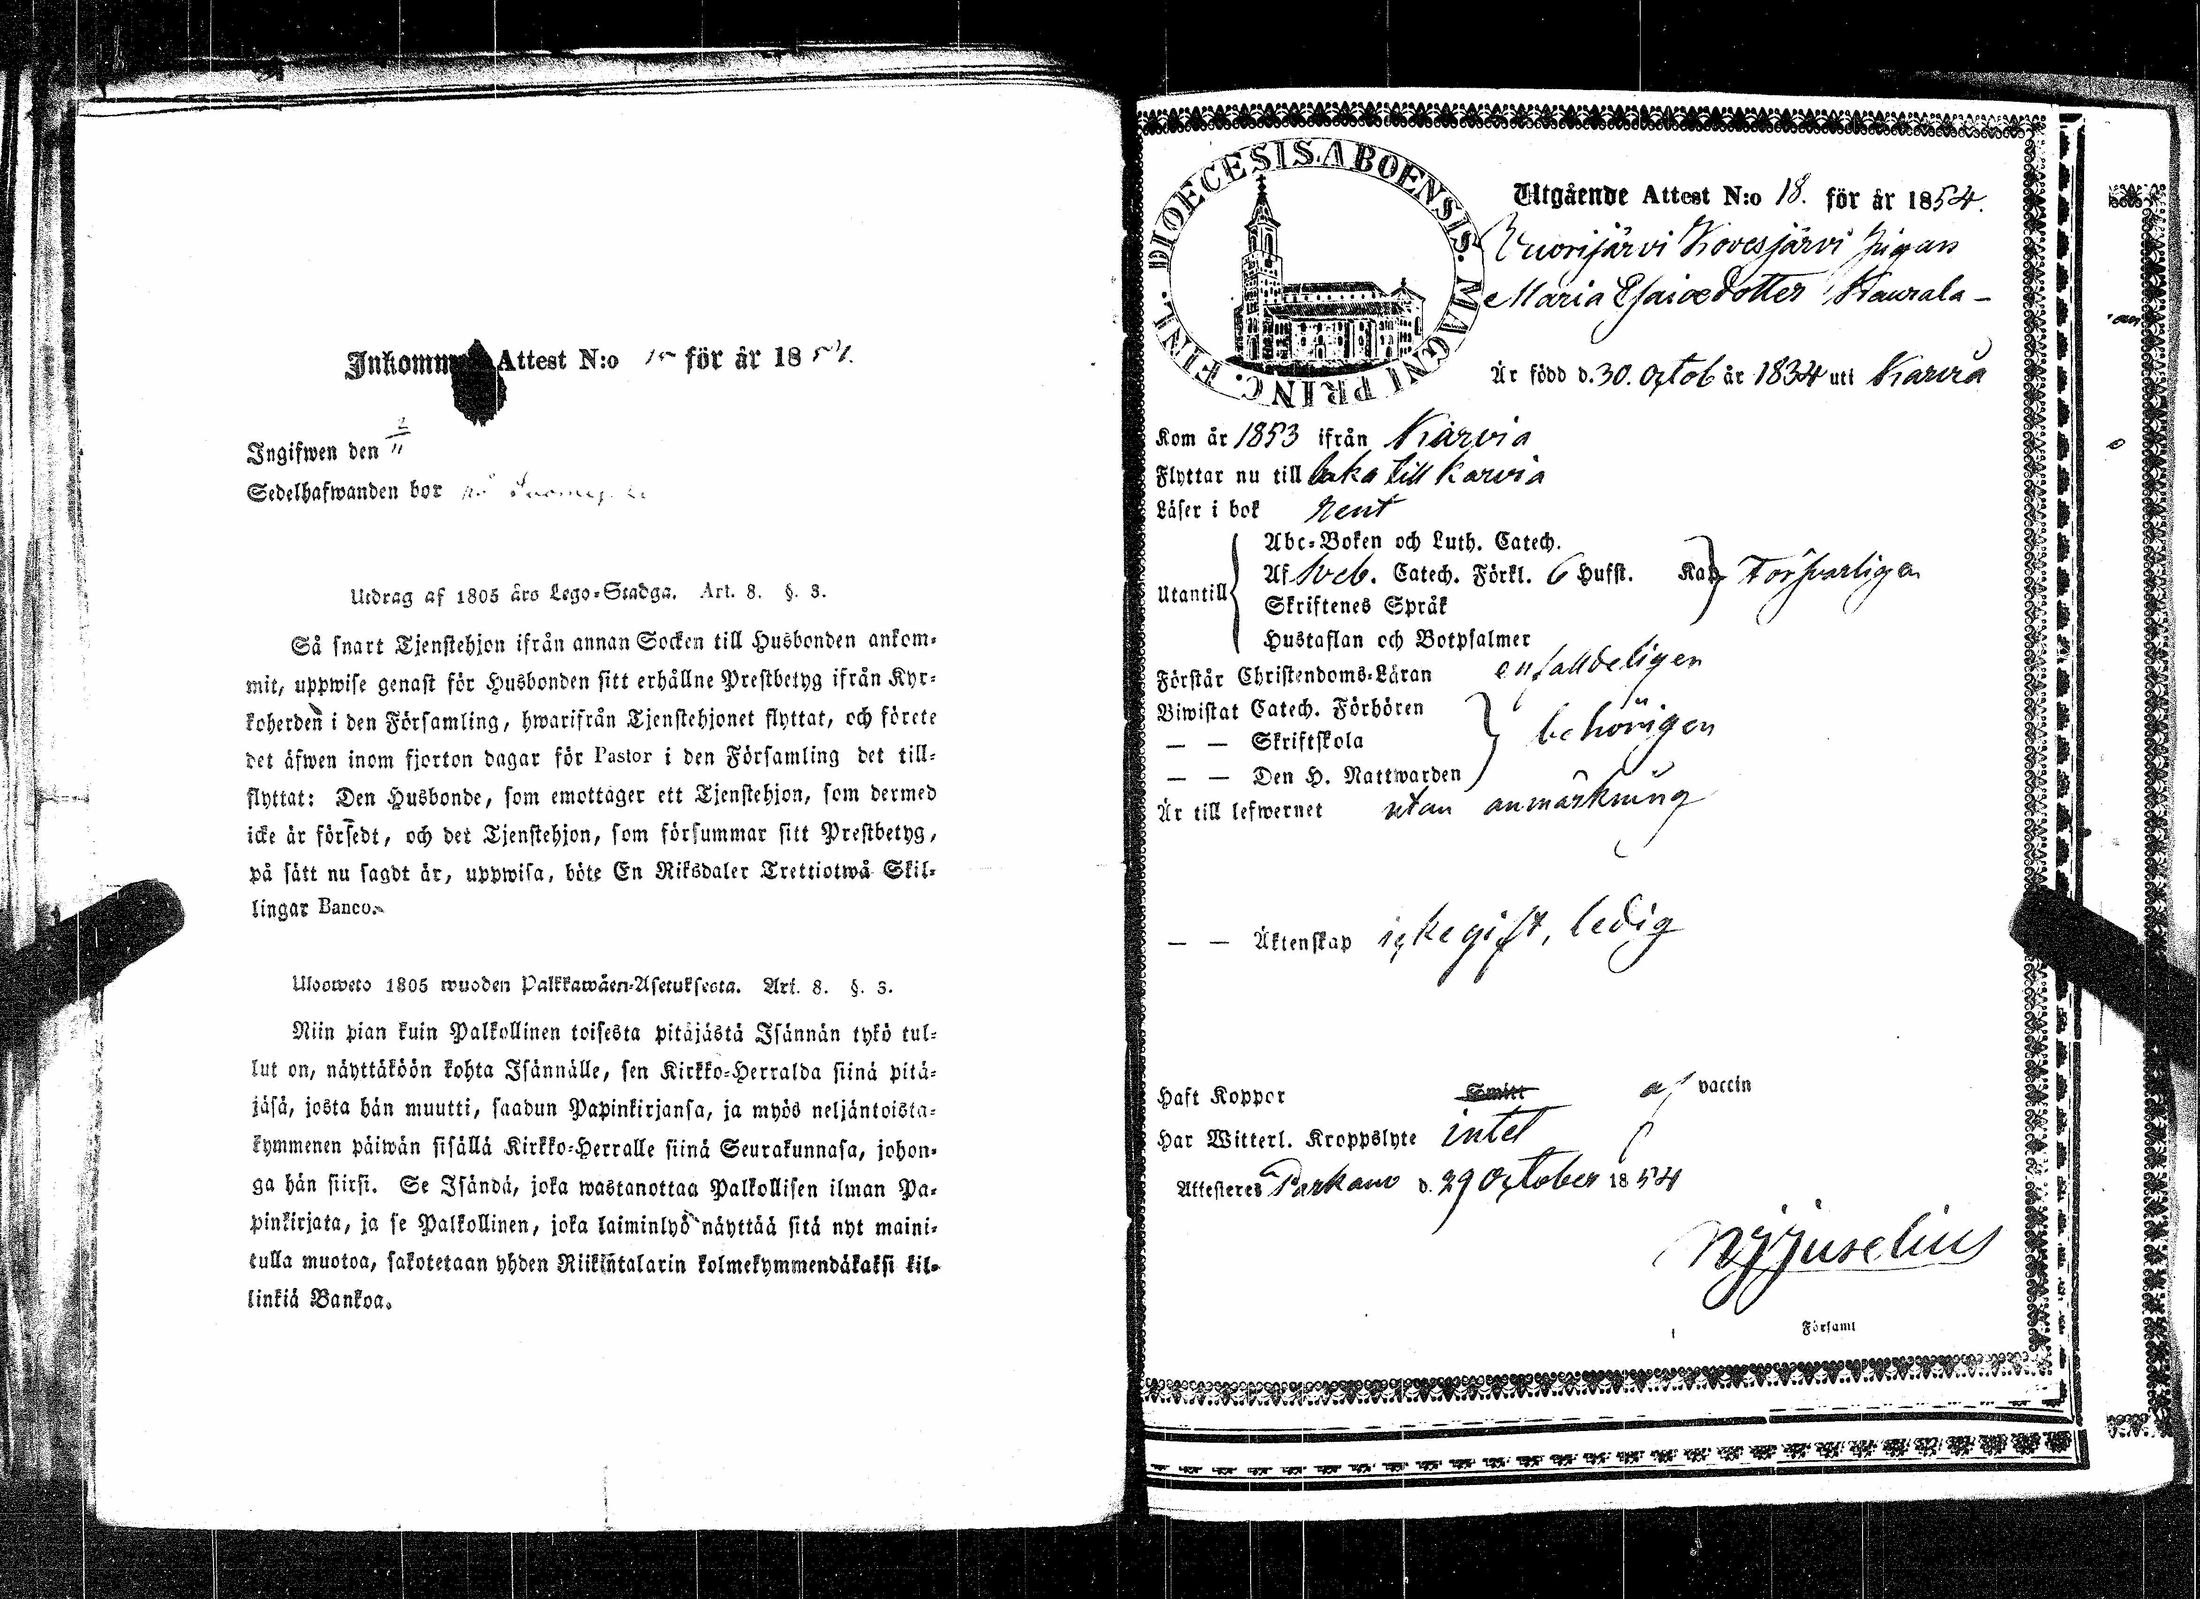 Inkomm Attest N:o 15 för år 1854.
Ingifwen den 2/11
Sedelhafwanden bor på
Utdrag af 1805 års Lego-Stadga. Art. 8. §. 3.
Så snart Tjenstehjon ifrån annan Socken till Husbonden ankom-
mit, uppwise genast för Husbonden sitt erhållne Prestbetyg ifrån Kyr-
koherden i den Församling, hwarifrån Tjenstehjonet flyttat, och förete
det äfwen inom fjorton dagar för Pastor i den Församling det till-
flyttat: Den Husbonde, som emottager ett Tjenstehjon, som dermed
icke är försedt, och det Tjenstehjon, som försummar sitt Prestbetyg,
på sätt nu sagdt är, uppwisa, böte En Riksdaler Trettiotwå Skil-
lingar Banco.
Ulosweto 1805 wuoden Palkkawäen-Asetuksesta. Art. 8. §. 3.
Niin pian kuin Palkollinen toisesta pitäjästä Isännän tykö tul-
lut on, näyttäköön kohta Isännälle, sen Kirkko-Herralda siinä pitä-
jäsä, josta hän muutti, saadun Papinkirjansa, ja myös neljäntoista-
kymmenen päiwän sisällä Kirkko-Herralle siinä Seurakunnasa, johon-
ga hän siirsi. Se Isändä, joka wastanottaa Palkollisen ilman Pa-
pinkirjata, ja se Palkollinen, joka laiminlyö näyttää sitä nyt maini-
tulla muotoa, sakotetaan yhden Riikintalarin kolmekymmendäkaksi kil-
linkiä Bankoa.
DIOECESIS ABOENSIS. MAGNI PRINC. FINL.
Utgående Attest N:o 18. för år 1854.
Vuorijärvi Kovesjärvi Pigan
Maria Esaiædotter Kaurala
Är född d. 30. Octob år 1834 uti Karvia
Kom år 1853 ifrån Karvia
Flyttar nu till baka till Karvia
Läser i bok rent
Utantill
Abc-Boken och Luth. Catech.
Af Sveb. Catech. Förkl. 6 Hufst. Kap försvarligen
Skriftenes Språk
Hustaflan och Botpsalmer
Förstår Christendoms-Läran enfalldeligen
Biwistat Catech. Förhören
— — Skriftskola behörigen
— — Den H. Nattwarden
Är till lefwernet utan anmärkning
— — Äktenskap icke gift, ledig
Haft Koppor Smitt af vaccin
Har Witterl. Kroppslyte intet
Attesteres Parkano d. 29 October 1854
Juselius
Församl